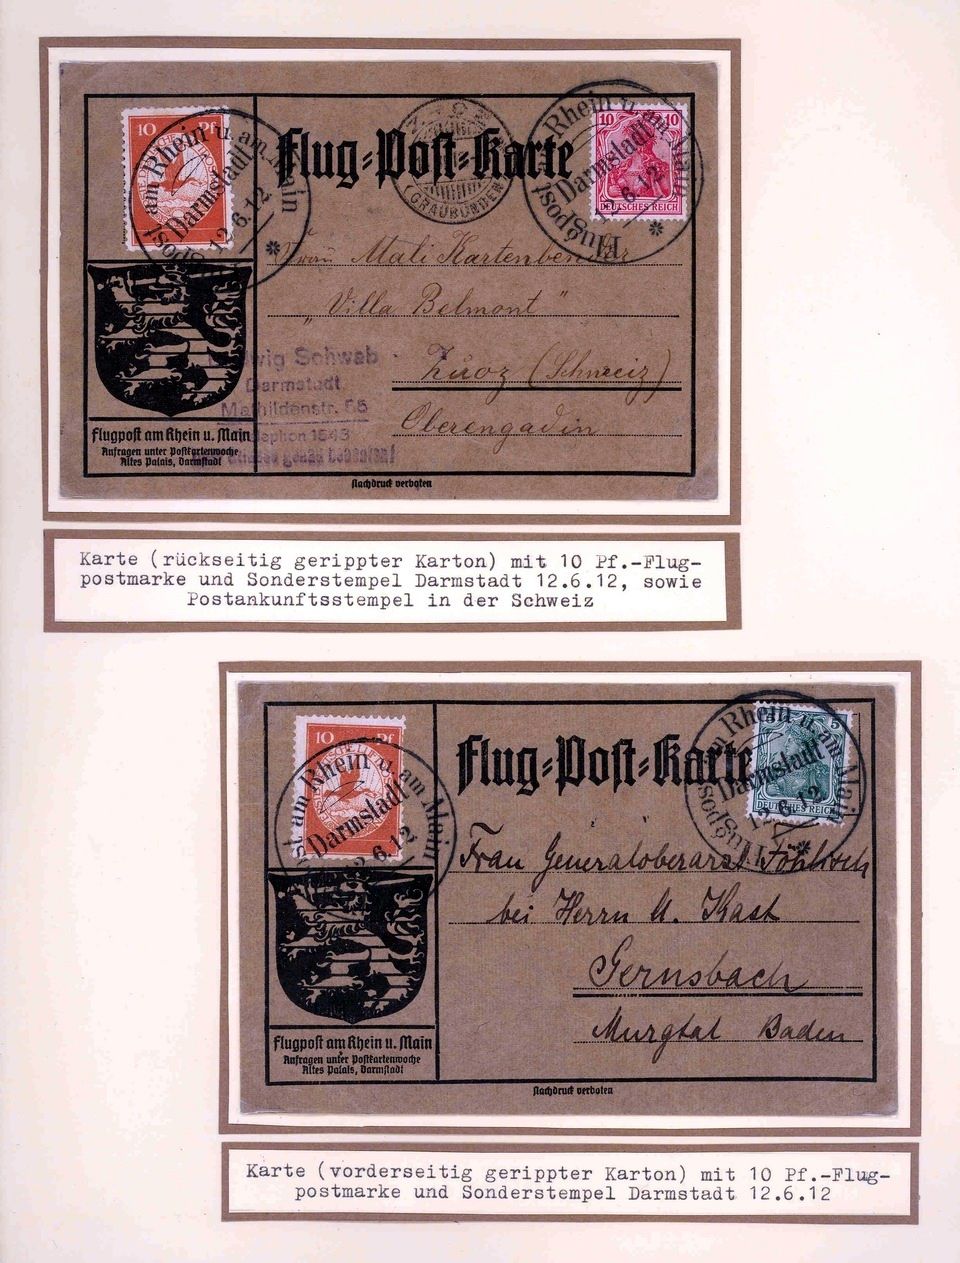 10 Pf
Flugpost am Rhein u. am Main
Darmstadt
12.6.12
Flug-Post-Karte
(GRAUBÜNDEN)
10 10
DEUTSCHES REICH
Flugpost am Rhein u. am Main
Darmstadt
12.6.12
Frau Mali Kartenbender
"Villa Belmont"
Zuoz (Schweiz)
Oberengadin
wig Schwab
Darmstadt
Mathildenstr. 56
Telephon 1543
Flugpost am Rhein u. Main
Anfragen unter Postkartenwoche
Altes Palais, Darmstadt
Nachdruck verboten
Karte (rückseitig gerippter Karton) mit 10 Pf.-Flug-
postmarke und Sonderstempel Darmstadt 12.6.12, sowie
Postankunftsstempel in der Schweiz
10 Pf
Flugpost am Rhein u. am Main
Darmstadt
12.6.12
Flug-Post-Karte
5
DEUTSCHES REICH
Flugpost am Rhein u. am Main
Darmstadt
12.6.12
Frau Generaloberarzt
bei Herrn A. Kast
Gernsbach
Murgtal Baden
Flugpost am Rhein u. Main
Anfragen unter Postkartenwoche
Altes Palais, Darmstadt
Nachdruck verboten
Karte (vorderseitig gerippter Karton) mit 10 Pf.-Flug-
postmarke und Sonderstempel Darmstadt 12.6.12